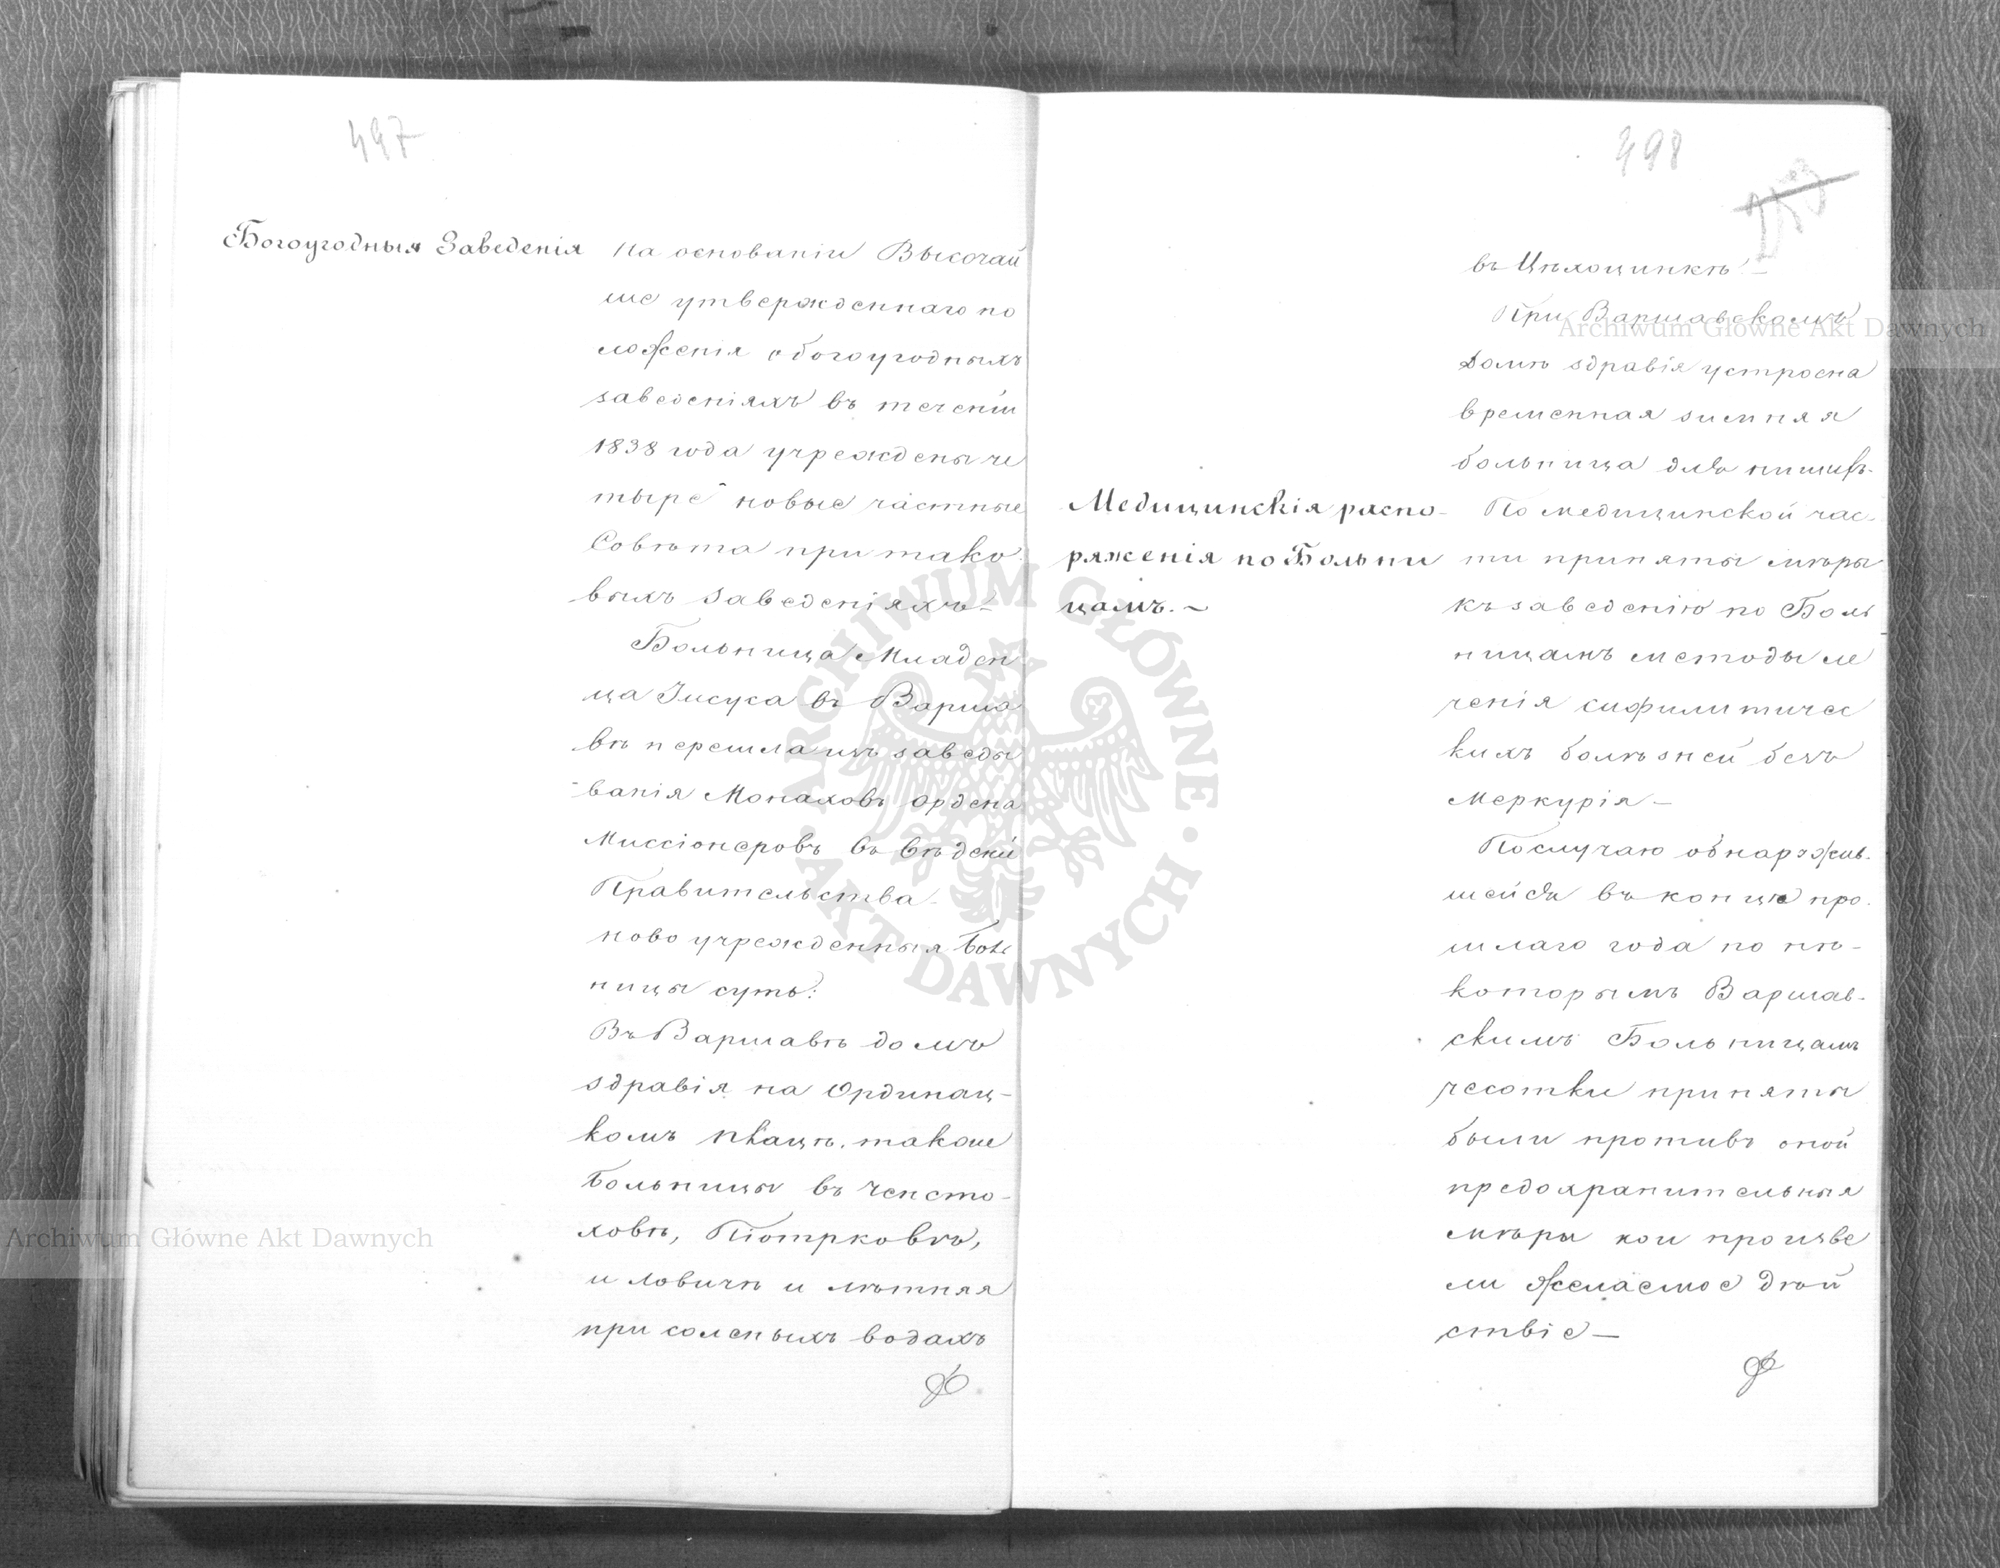 497
Богоугодныя Заведенія
На основаніи Высочай
ше утвержденнаго по
ложенія о богоугодныхъ
заведеніяхъ въ теченіи
1838 года учреждены че
тыре новые частные
Совѣта при тако
выхъ заведеніяхъ –
Больница Младен
ца Іисуса въ Варша
вѣ перешла изъ заведы
ванія Монаховъ Ордена
Миссіонеровъ въ вѣдені
Правительства –
ново учрежденныя Боль
ницы суть:
Въ Варшавѣ домъ
здравія на Ординац-
комъ плацѣ. также
Больницы въ Ченсто-
ховѣ, Піотрковѣ,
и Ловичѣ и лѣтняя
при соленыхъ водахъ
498
въ Цѣхоцинкѣ. –
При Варшавскомъ
Домѣ здравія устроена
временная зимняя
больница для нищихъ.
Медицинскія распо-
ряженія по Больни
цамъ. ~
По медицинской час-
ти приняты мѣры
къ заведенію по Боль
ницамъ методы ле
ченія сифилитичес
кихъ болѣзней безъ
Меркурія –
По случаю обнаружив-
шейся въ концѣ про-
шлаго года по нѣ-
которымъ Варшав-
скимъ Больницамъ
чесотки приняты
были противъ оной
предохранительныя
мѣры кои произве
ли желаемое дѣй
ствіе –
Archiwum Główne Akt Dawnych
Archiwum Główne Akt Dawnych
ARCHIWUM GŁÓWNE · AKT DAWNYCH ·